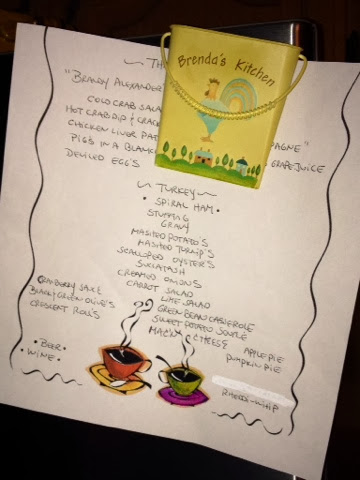 ~ TH
Brenda's Kitchen
"BRANDY ALEXANDER
AGNE"
COLD CRAB SALA
GRAPE JUICE
HOT CRAB DIP & CRACK
CHICKEN LIVER PAT
PIG'S IN A BLANK
DEVILED EGG'S
~ TURKEY ~
• SPIRAL HAM •
STUFFING
GRAVY
MASHED POTATO'S
MASHED TURNIP'S
SCALLOPED OYSTER'S
SUCIATASH
CREAMED ONIONS
CARROT SALAD
LIME SALAD
GREEN BEAN CASSEROLE
SWEET POTATO SOUFLE
MAC N CHEESE
CRANBERRY SAUCE
BLACK/GREEN OLIVE'S
CRESCENT ROLL'S
APPLE PIE
PUMPKIN PIE
• BEER •
• WINE •